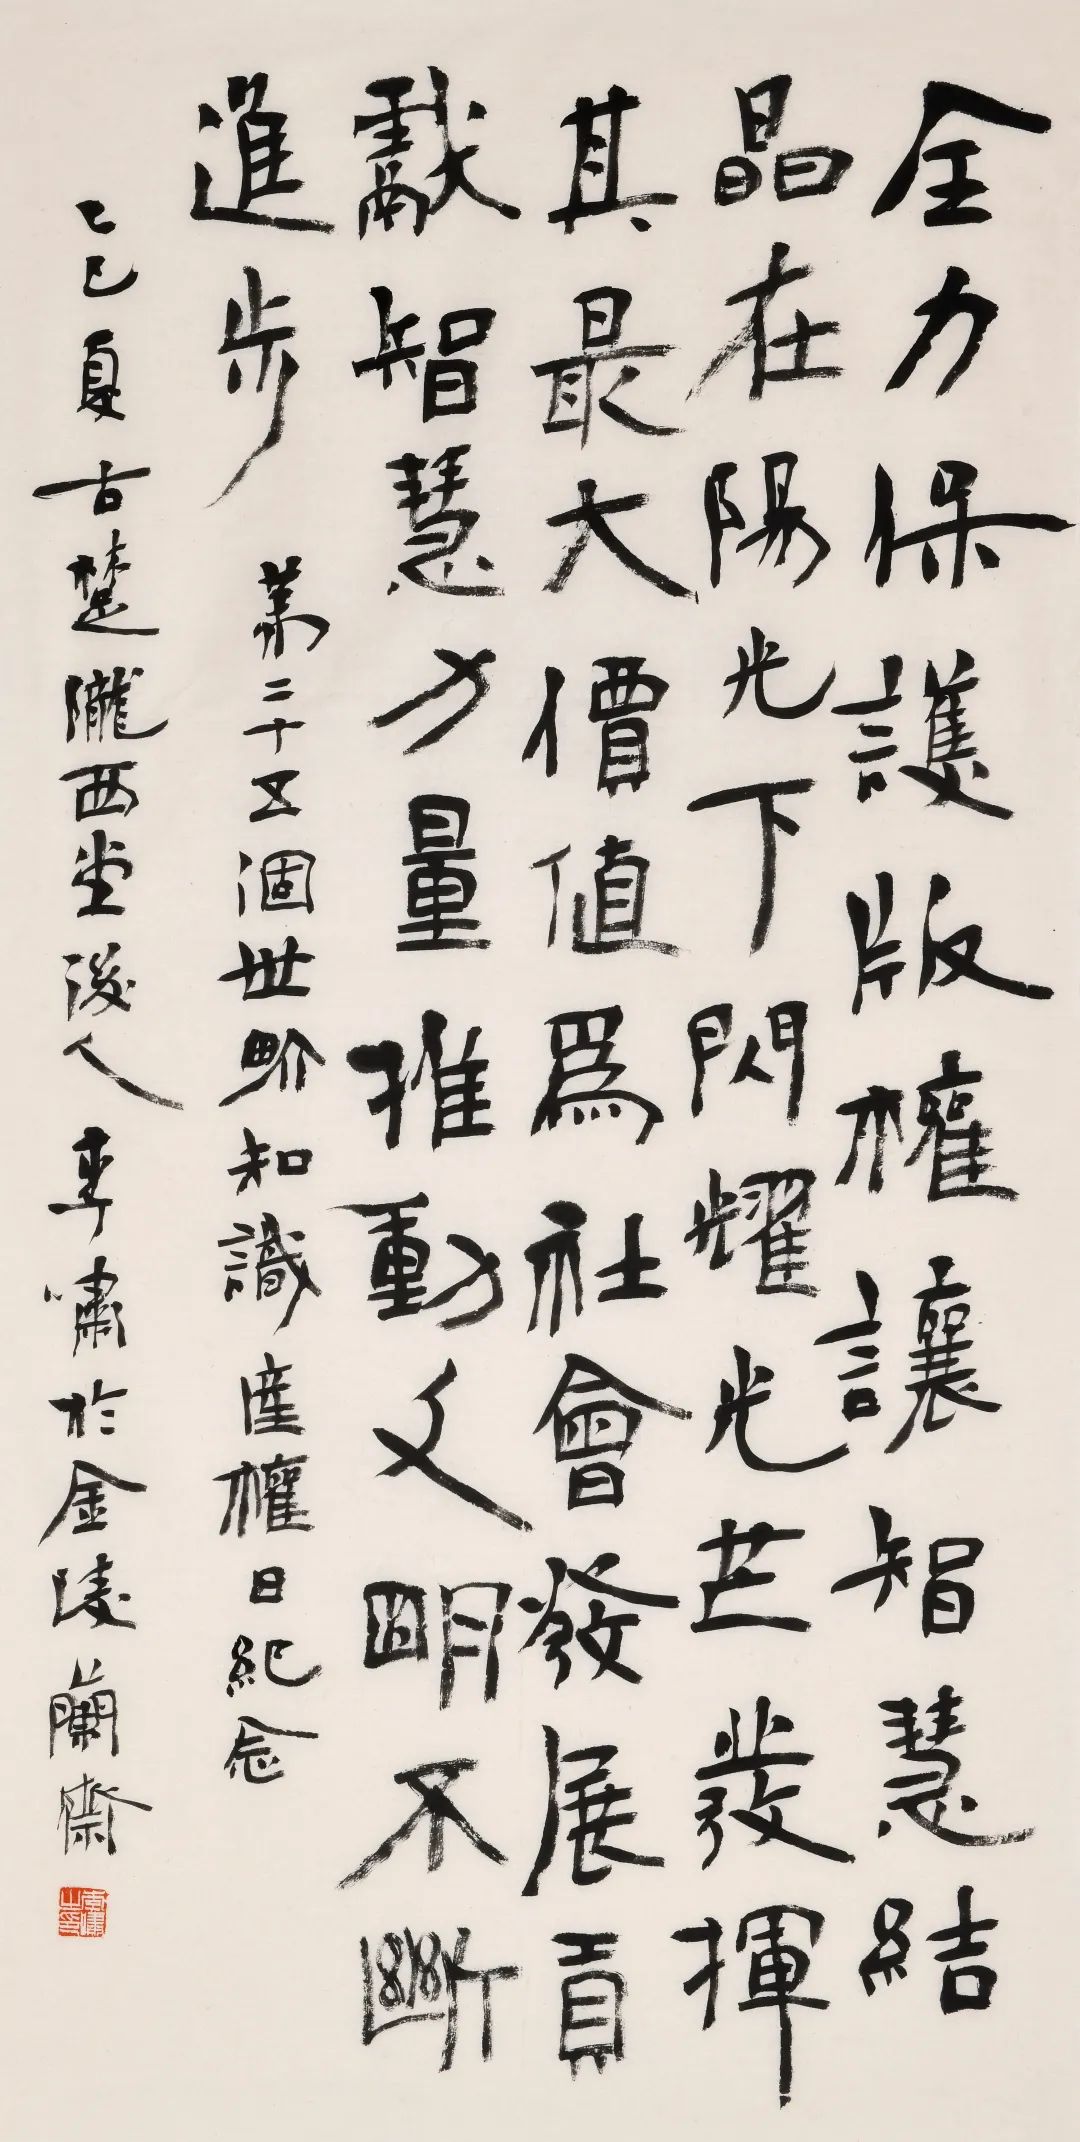 全力保護版權讓智慧結
晶在陽光下閃耀光芒發揮
其最大價值為社會發展貢
獻智慧力量推動文明不斷
進步
第二十五個世界知識産權日紀念
乙巳夏古楚隴西堂後人李嘯於金陵蘭齋
李嘯之印